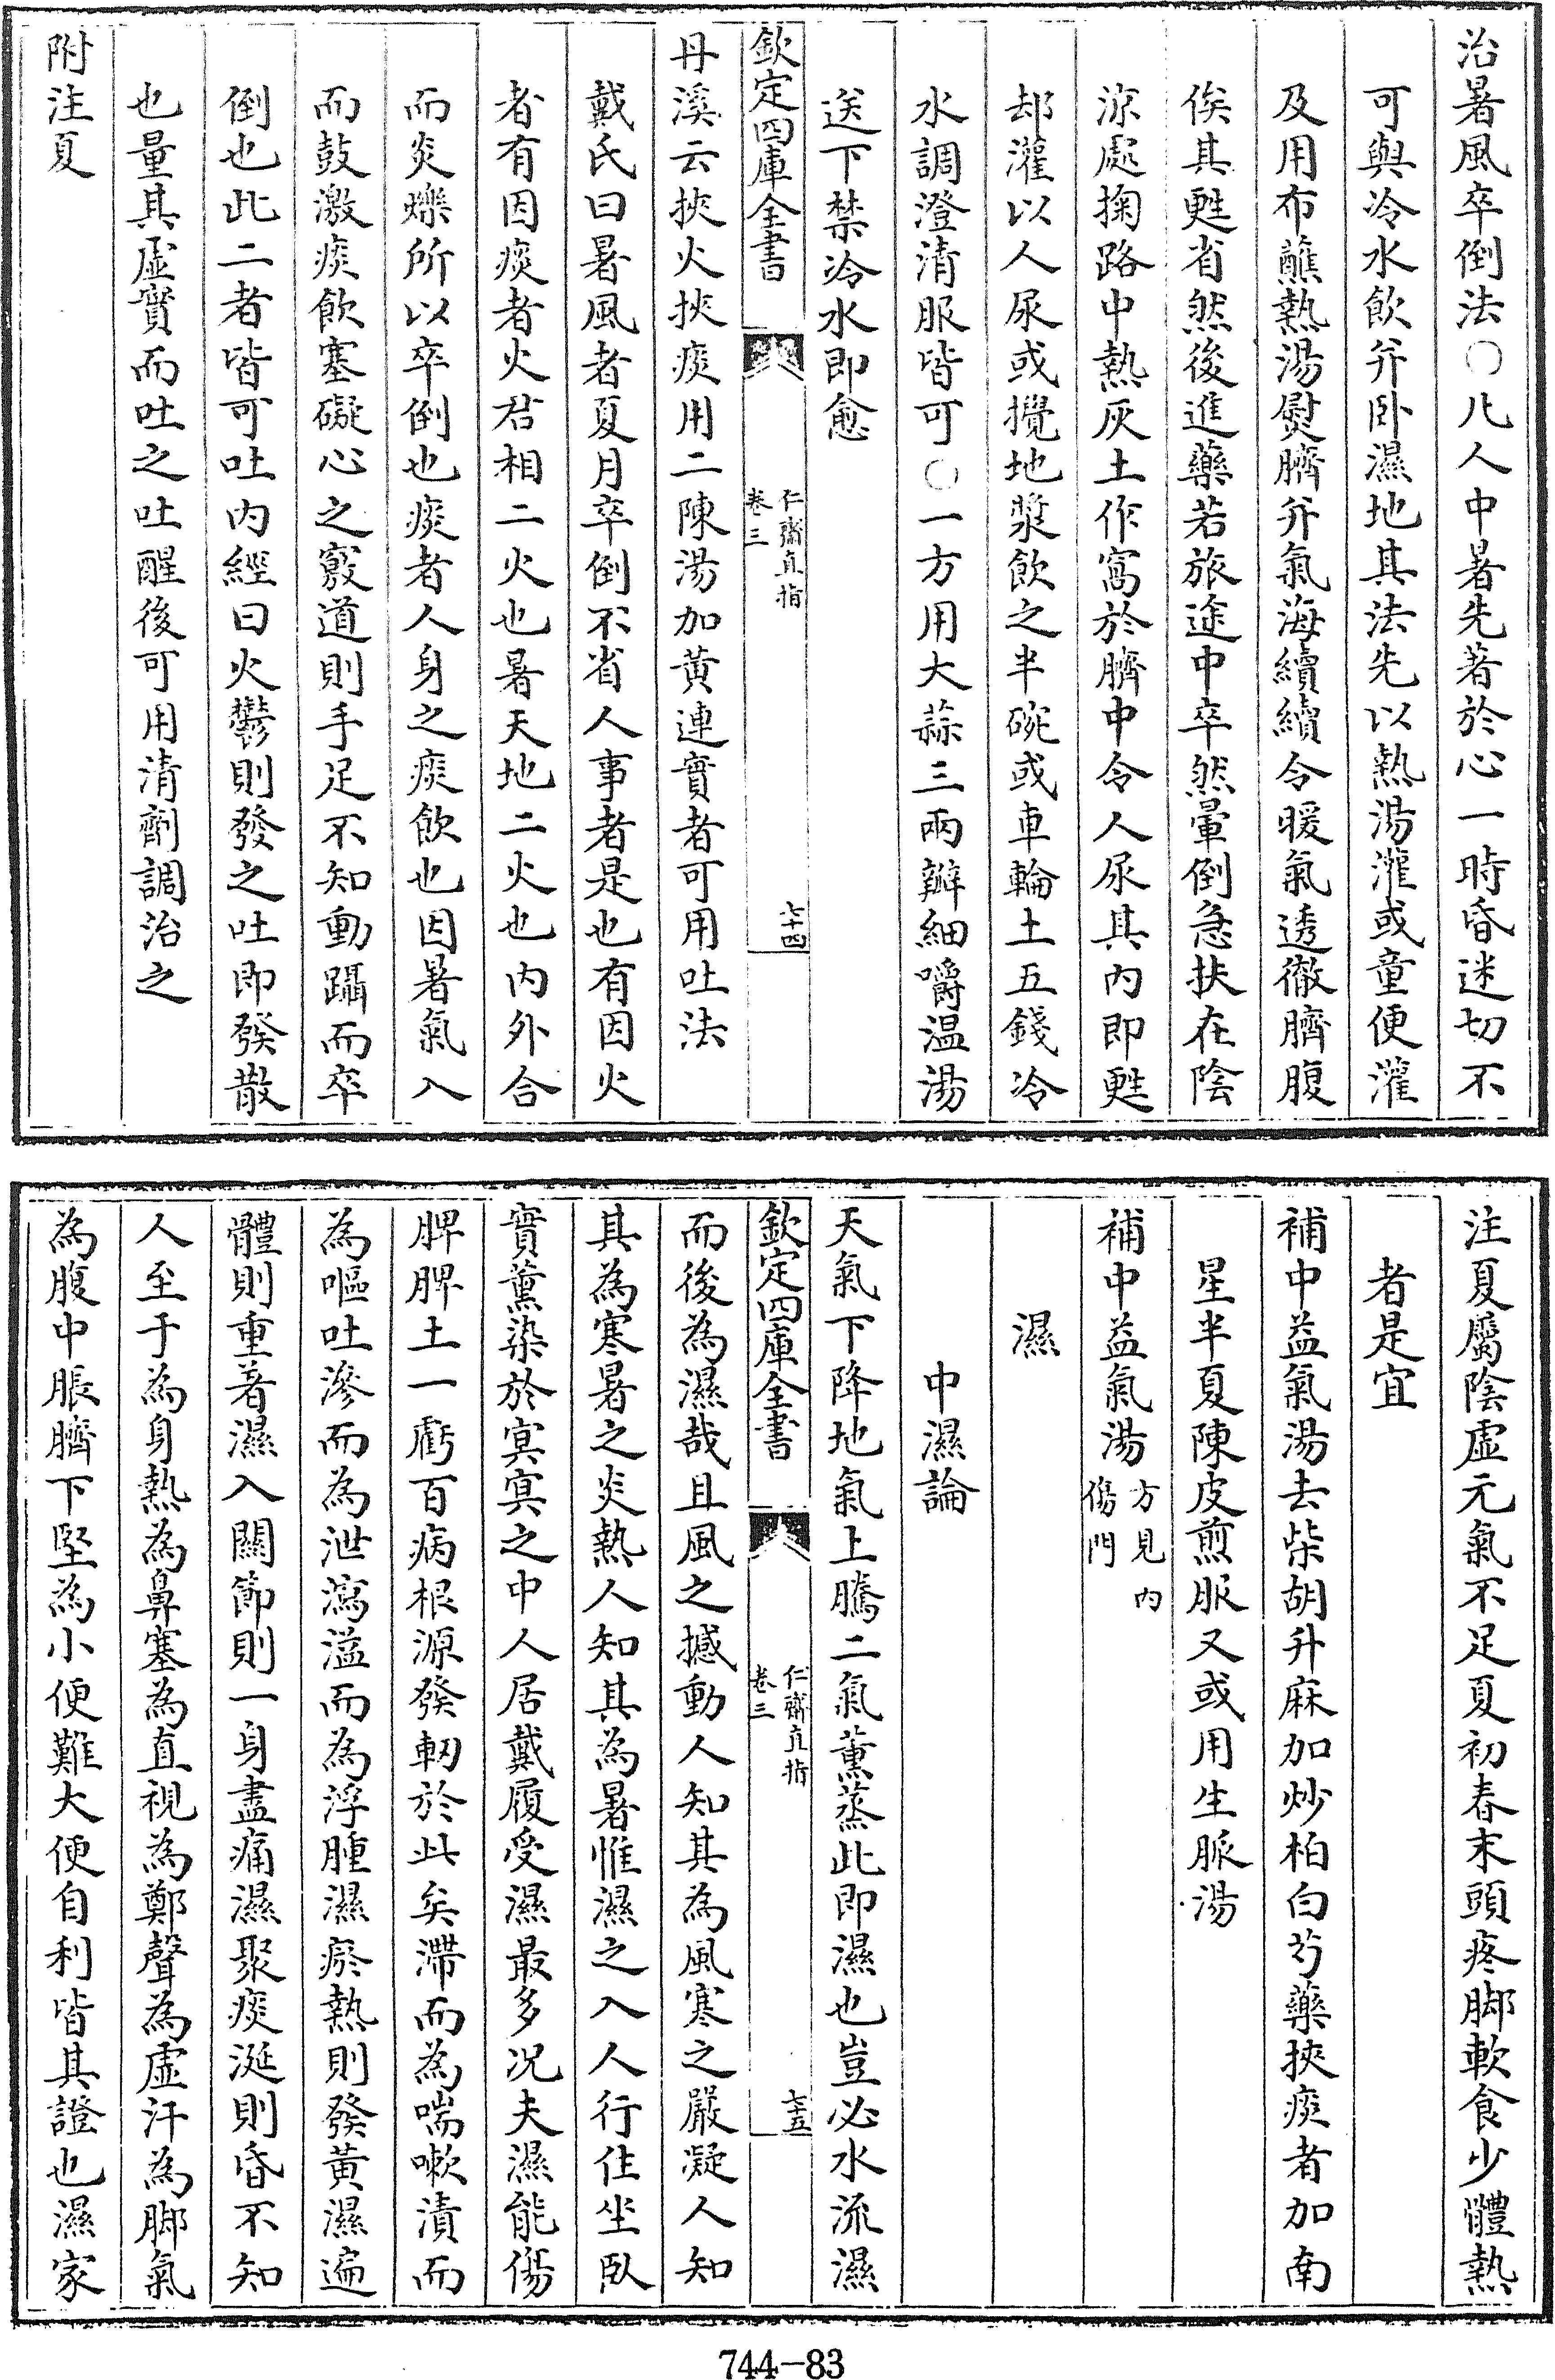 治暑風卒倒法〇凡人中暑先著於心一時昏迷切不
可與冷水飲并卧濕地其法先以熱湯灌或童便灌
及用布蘸熱湯熨臍并氣海續續令暖氣透徹臍腹
俟其甦省然後進藥若旅途中卒然暈倒急扶在陰
涼處掬路中熱灰土作窩於臍中令人尿其內即甦
却灌以人尿或攪地漿飲之半碗或車輪土五錢冷
水調澄清服皆可〇一方用大蒜三兩瓣細嚼温湯
送下禁冷水即愈
欽定四庫全書
仁齋直指
卷三
七十四
丹溪云挾火挾痰用二陳湯加黄連實者可用吐法
戴氏曰暑風者夏月卒倒不省人事者是也有因火
者有因痰者火君相二火也暑天地二火也內外合
而炎爍所以卒倒也痰者人身之痰飲也因暑氣入
而鼓激痰飲塞礙心之竅道則手足不知動躡而卒
倒也此二者皆可吐內經曰火鬱則發之吐即發散
也量其虛實而吐之吐醒後可用清劑調治之
附注夏
注夏屬陰虛元氣不足夏初春末頭疼脚軟食少體熱
者是宜
補中益氣湯去柴胡升麻加炒柏白芍藥挾痰者加南
星半夏陳皮煎服又或用生脈湯
補中益氣湯方見內傷門
濕
中濕論
天氣下降地氣上騰二氣薰蒸此即濕也豈必水流濕
欽定四庫全書
仁齋直指
卷三
七十五
而後為濕哉且風之撼動人知其為風寒之嚴凝人知
其為寒暑之炎熱人知其為暑惟濕之入人行住坐臥
實薰染於冥冥之中人居戴履受濕最多况夫濕能傷
脾脾土一虧百病根源發軔於此矣滯而為喘嗽漬而
為嘔吐滲而為泄瀉溢而為浮腫濕瘀熱則發黄濕遍
體則重著濕入關節則一身盡痛濕聚痰涎則昏不知
人至于為身熱為鼻塞為直視為鄭聲為虛汗為脚氣
為腹中脹臍下堅為小便難大便自利皆其證也濕家
744-83